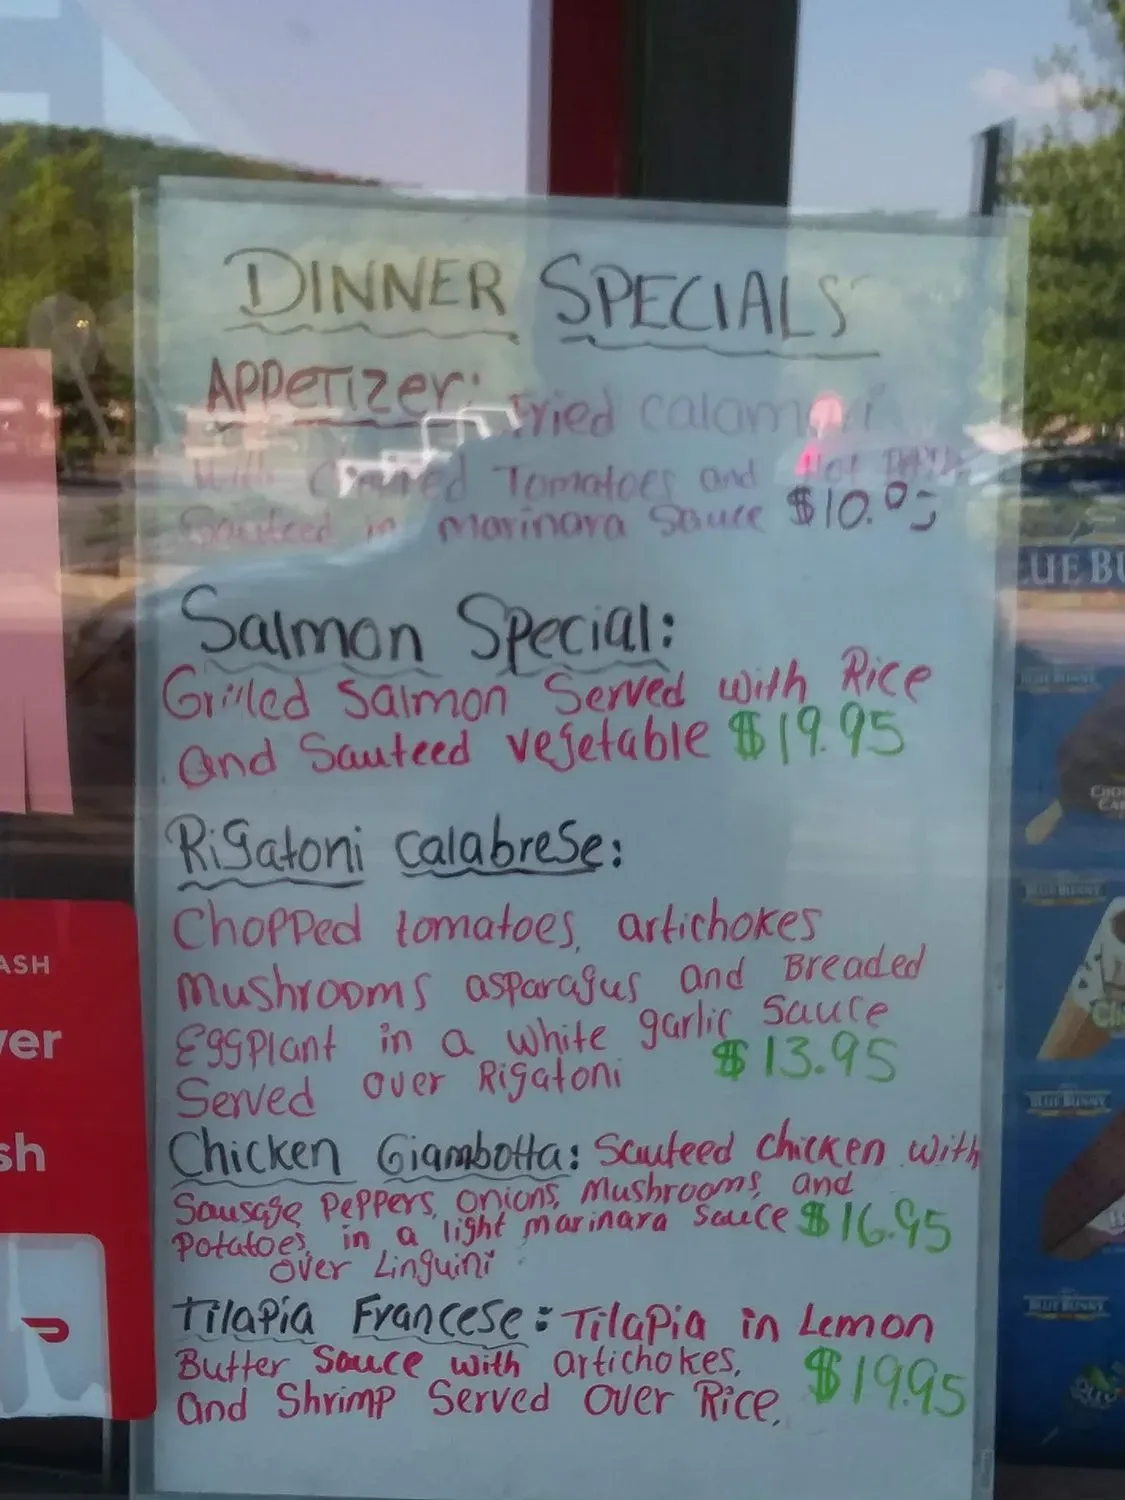 DINNER SPECIALS
APPetizer: Fried calamari
With Tomatoes and Hot
Sauteed in marinara Sauce $10.95
Salmon Special:
Grilled Salmon Served with Rice
and Sauteed vegetable $19.95
Rigatoni calabrese:
Chopped tomatoes, artichokes
mushrooms asparagus and Breaded
Eggplant in a white garlic Sauce
Served over Rigatoni $13.95
Chicken Giambotta: Sauteed chicken with
Sausage, Peppers, onions, mushrooms, and
Potatoes, in a light marinara Sauce $16.95
over Linguini
Tilapia Francese: Tilapia in Lemon
Butter Sauce with artichokes,
and Shrimp Served Over Rice, $19.95
ASH
ver
sh
LUE BU
BLUE BUNNY
BLUE BUNNY
BLUE BUNNY
BLUE BUNNY